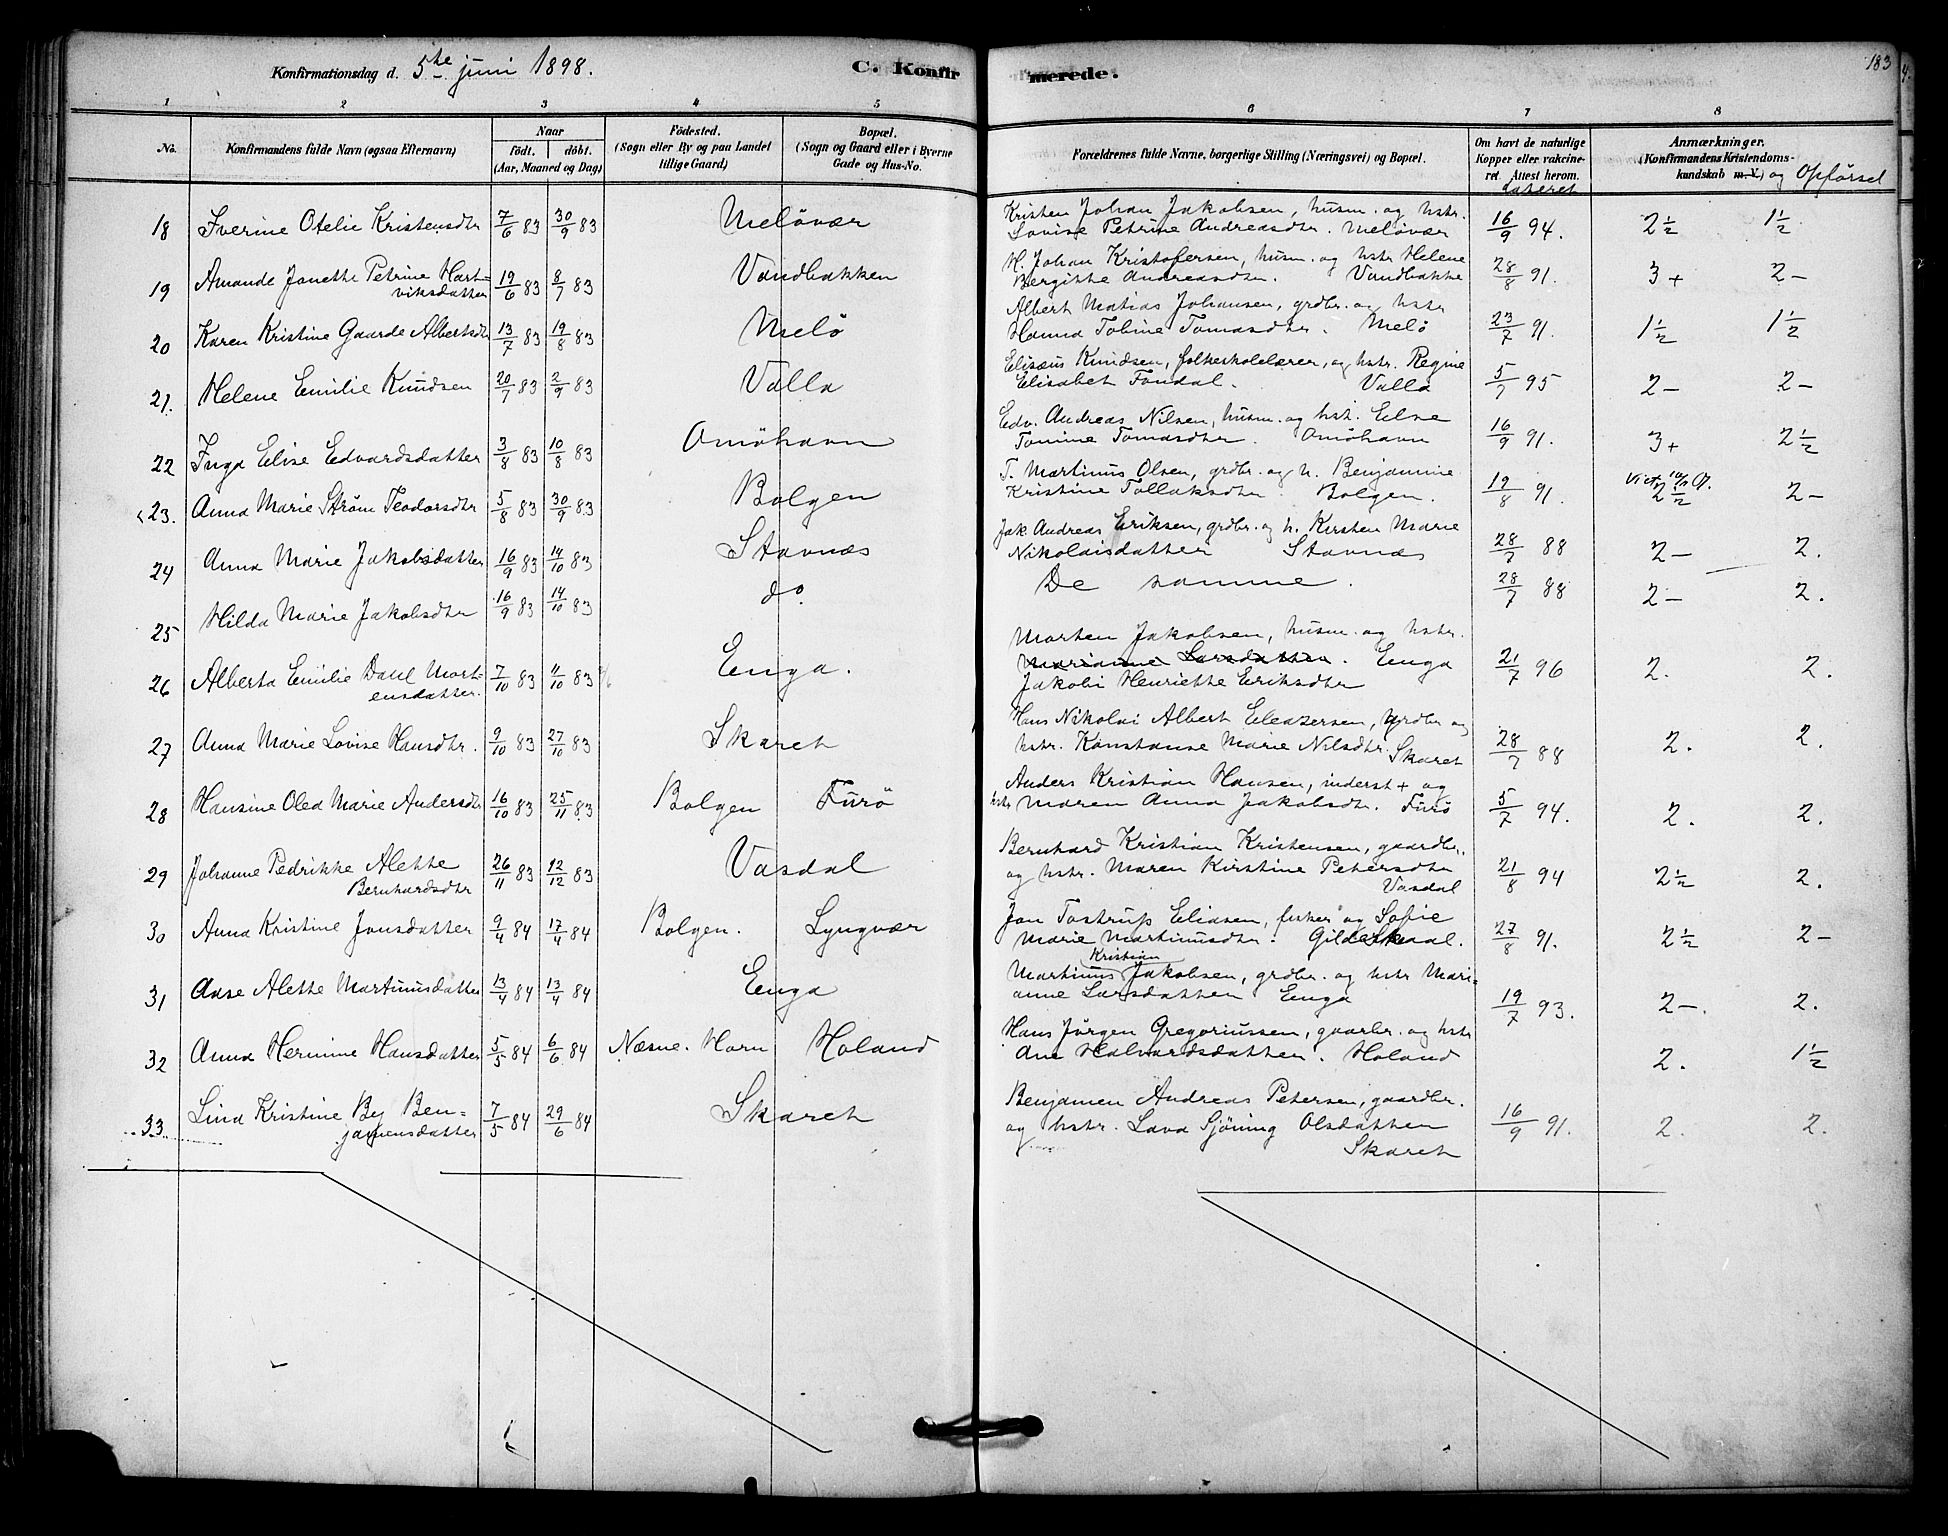 Konfirmationsdag d. 5te juni 1898.
C. Konfirmerede.
183
1 2 3 4 5 6 7 8
No.
Konfirmandens fulde Navn (ogsaa Efternavn)
Naar
födt. döbt.
(Aar, Maaned og Dag)
Födested.
(Sogn eller By og paa Landet
tillige Gaard)
Bopæl.
(Sogn og Gaard eller i Byerne
Gade og Hus-No.
Forældrenes fulde Navne, borgerlige Stilling (Næringsvei) og Bopæl.
Om havt de naturlige
Kopper eller vakcine-
ret. Attest herom.
dateret
Anmærkninger.
(Konfirmandens Kristendoms-
kundskab m.V.) og Opförsel
18 Iverine Otelie Kristensdtr 7/6 83 30/9 83 Melövær Kristen Johan Jakobsen, husm. og hstr.
Lovise Petrine Andreasdtr. Melövær 16/9 94. 2½ 1½
19 Amande Janette Petrine Hart=
viksdatter 19/6 83 8/7 83 Vandbakken H. Johan Kristofersen, husm. og hstr Helene
Bergitte Andreasdtr. Vandbakke 28/8 91. 3+ 2-
20 Karen Kristine Gaarde Albertsdtr 13/7 83 19/8 83 Melö Albert Matias Johansen, grdbr. og hstr
Hanna Tobine Tomasdtr. Melö 23/7 91. 1½ 1½
21. Helene Emilie Knudsen 20/7 83 2/9 83 Valla Elisæus Knudsen, folkeskolelærer, og hstr. Regine
Elisabet Fondal. Valla 5/7 95 2- 2-
22 Inga Elise Edvardsdatter 3/8 83 10/8 83 Omöhavn Edv. Andreas Nilsen, husm. og hst. Else
Tomine Tomasdtr. Omöhavn 16/9 91. 3+ 2½
23. Anna Marie Ström Teodorsdtr 5/8 83 30/9 83 Bolgen T. Martinus Olsen, grdbr. og h. Benjamine
Kristine Tollaksdtr. Bolgen. 19/8 91. 2½ 2-
24 Anna Marie Jakobsdatter 16/9 83 14/10 83 Stavnes Jak. Andreas Eriksen, grdbr. og h. Kirsten Marie
Nikolaisdatter Stavnes 28/7 88 2- 2.
25 Hilda Marie Jakobsdtr 16/9 83 14/10 83 do. De samme. 28/7 88 2- 2.
26 Alberta Emilie Dahl Mort=
ensdatter. 7/10 83 11/10 83 Enga. Morten Jakobsen, husm. og hstr.
Marianne Larsdatter. Enga
Jakobi Henriette Eriksdtr 21/7 96 2. 2.
27 Anna Marie Lovise Hansdtr. 9/10 83 27/10 83 Skaret Hans Nikolai Albert Eleazersen, grdbr og
hstr. Konstanse Marie Nilsdtr. Skaret 28/7 88 2. 2.
28 Hansine Olea Marie Andersdtr 16/10 83 25/11 83 Bolgen Furö Anders Kristian Hansen, inderst + og
hstr Maren Anna Jakobsdtr. Furö 5/7 94. 2. 2.
29 Johanne Pedrikke Alette
Bernhardsdtr 26/11 83 12/12 83 Vasdal Bernhard Kristian Kristensen, gaardbr.
og hstr. Maren Kirstine Petersdtr
Vasdal 21/8 94 2½ 2.
30 Anna Kristine Jonsdatter 9/4 84 17/4 84 Bolgen. Lyngvær Jon Tostrup Eliasen, fisker og Sofie
Marie Martinusdtr. Gildeskaal. 27/8 91. 2½ 2-
31 Aase Alette Martinusdatter 13/4 84 13/4 84 Enga Martinus Kristian Jakobsen, grdbr. og hstr Mari=
anne Larsdatter Enga 19/7 93. 2-. 2.
32 Anna Hermine Hansdatter 5/5 84 6/6 84 Næsne. Horn Holand Hans Jörgen Gregoriussen, gaarbr. og hstr
Ane Halvardsdatter. Holand 2. 1½
33 Lina Kristine By Ben=
jamensdatter 7/5 84 29/6 84 Skaret Benjamen Andreas Petersen, gaardbr.
og hstr. Lava Sjöning Olsdatter
Skaret 16/9 91. 2. 2.